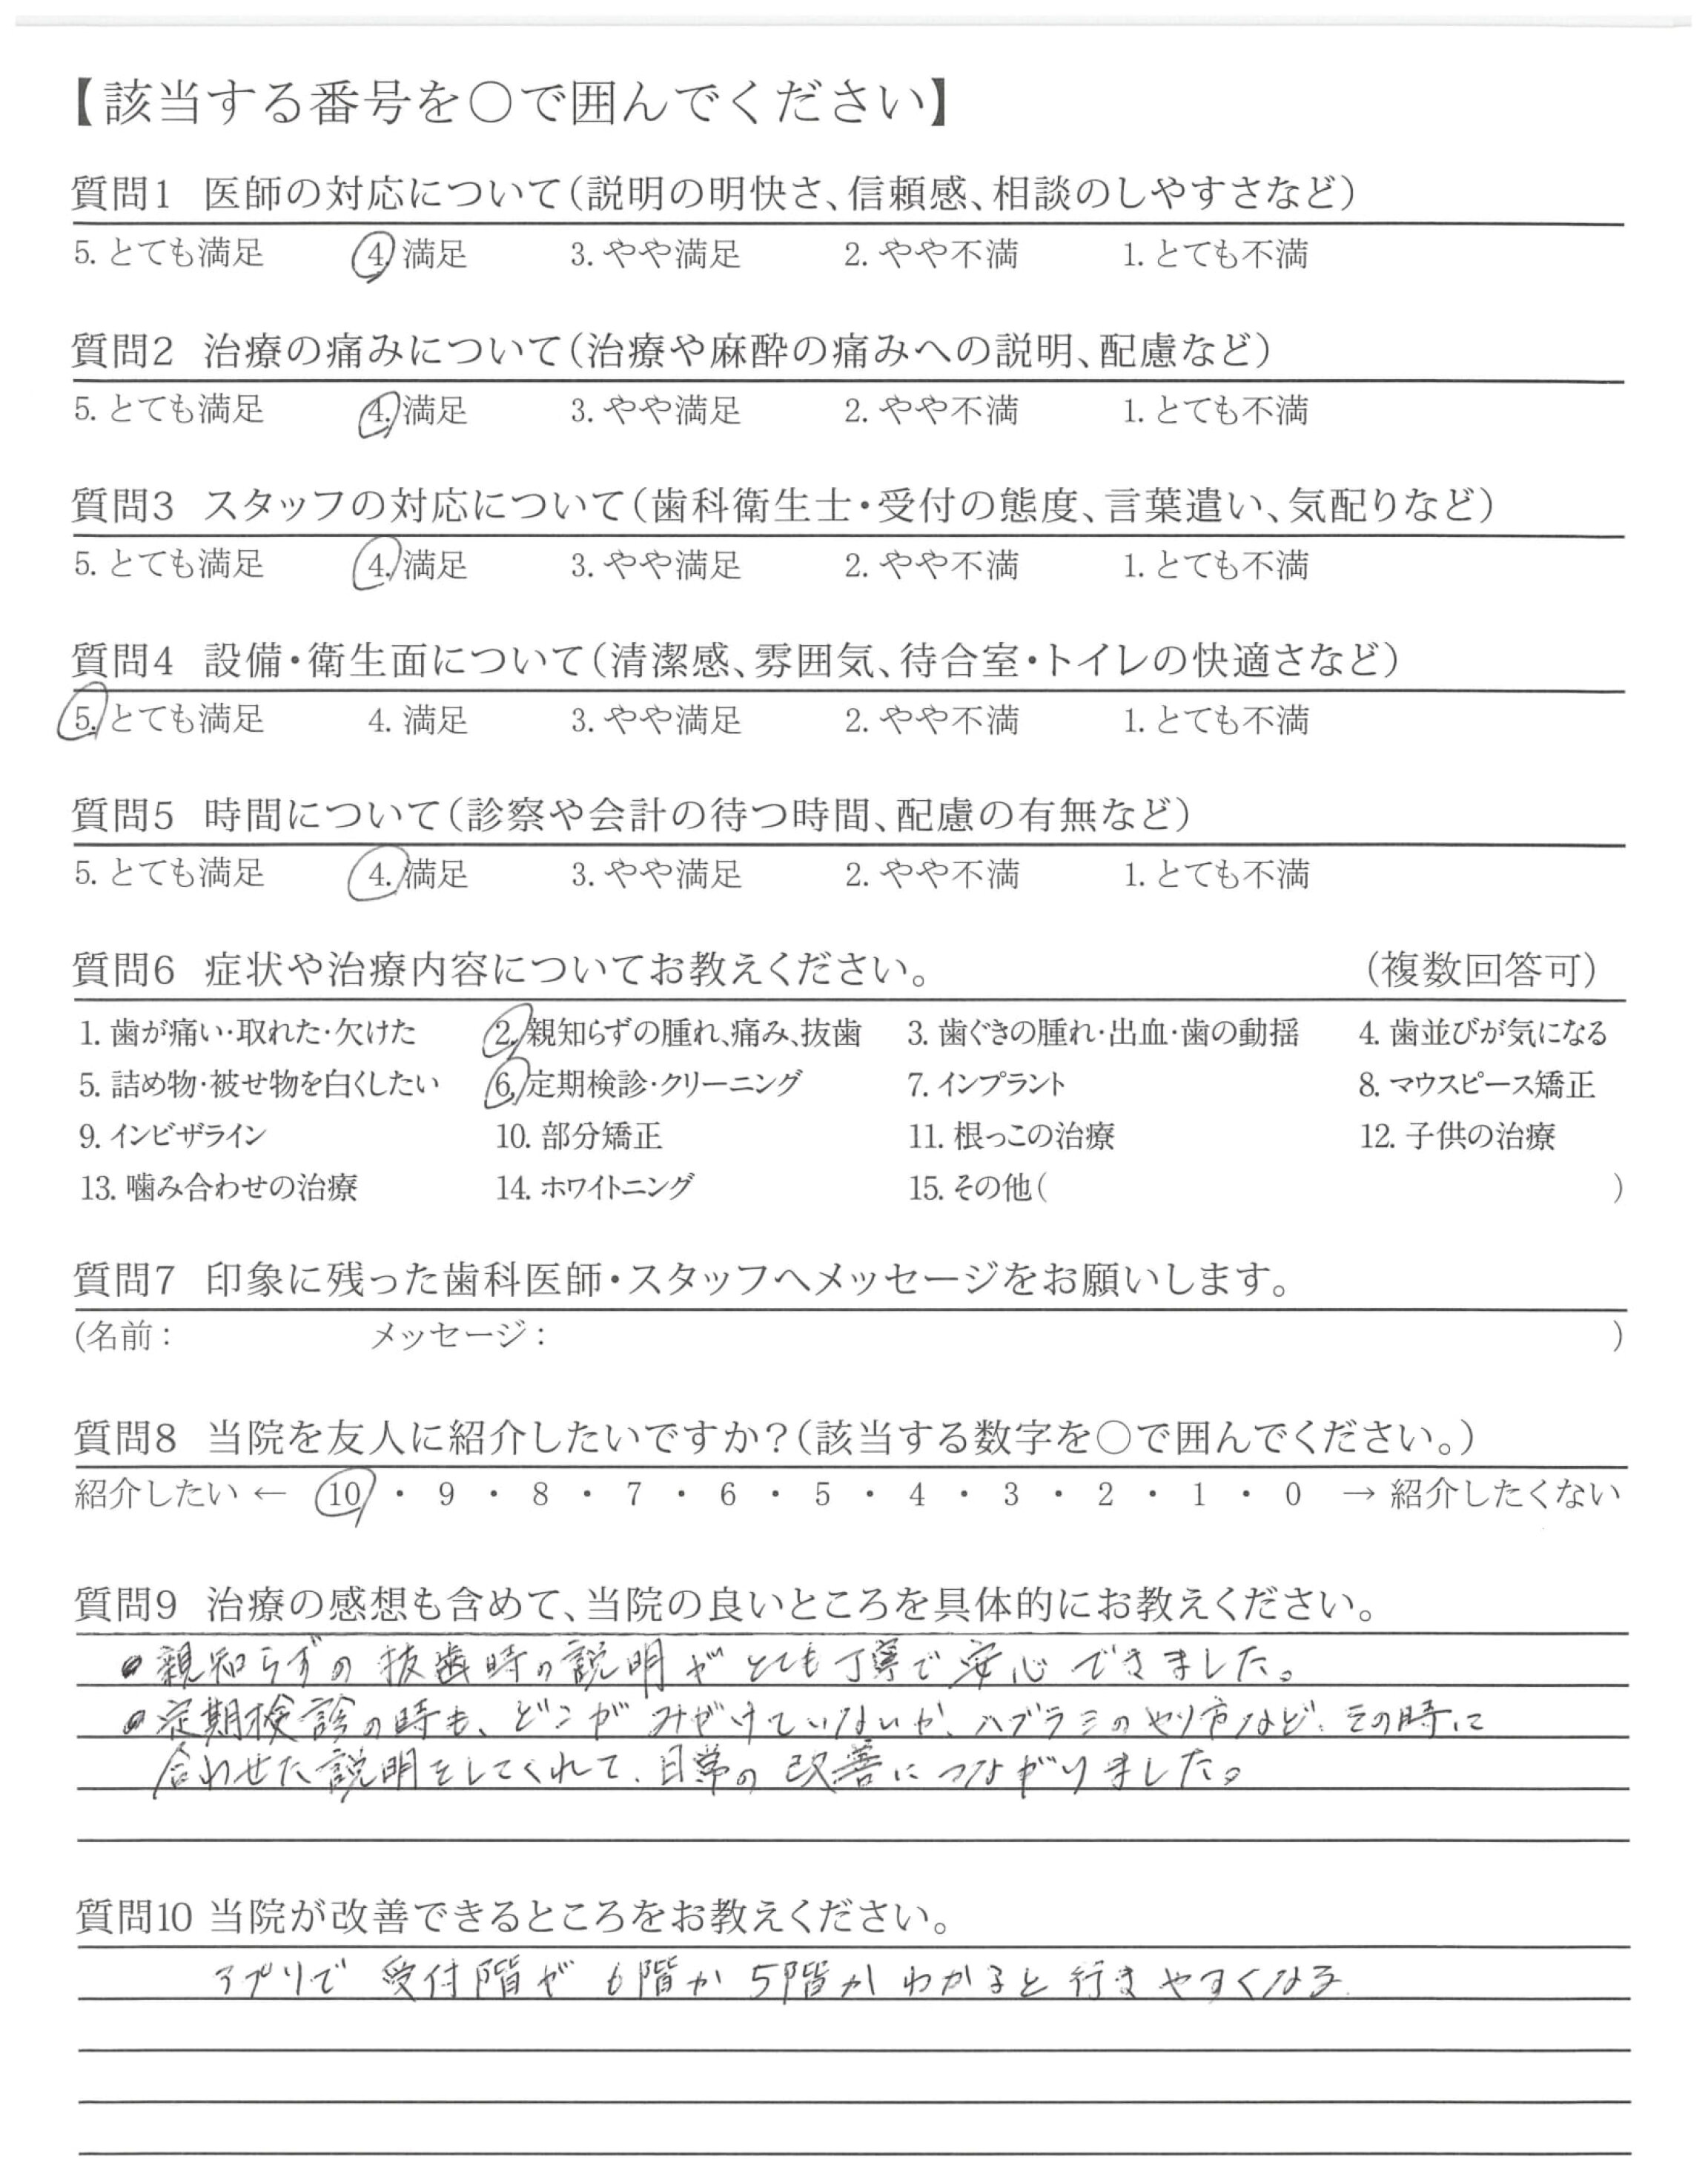 【該当する番号を○で囲んでください】
質問1 医師の対応について(説明の明快さ、信頼感、相談のしやすさなど)
5. とても満足 4. 満足 3. やや満足 2. やや不満 1. とても不満
質問2 治療の痛みについて(治療や麻酔の痛みへの説明、配慮など)
5. とても満足 4. 満足 3. やや満足 2. やや不満 1. とても不満
質問3 スタッフの対応について(歯科衛生士・受付の態度、言葉遣い、気配りなど)
5. とても満足 4. 満足 3. やや満足 2. やや不満 1. とても不満
質問4 設備・衛生面について(清潔感、雰囲気、待合室・トイレの快適さなど)
5. とても満足 4. 満足 3. やや満足 2. やや不満 1. とても不満
質問5 時間について(診察や会計の待つ時間、配慮の有無など)
5. とても満足 4. 満足 3. やや満足 2. やや不満 1. とても不満
質問6 症状や治療内容についてお教えください。 (複数回答可)
1. 歯が痛い・取れた・欠けた 2. 親知らずの腫れ、痛み、抜歯 3. 歯ぐきの腫れ・出血・歯の動揺 4. 歯並びが気になる
5. 詰め物・被せ物を白くしたい 6. 定期検診・クリーニング 7. インプラント 8. マウスピース矯正
9. インビザライン 10. 部分矯正 11. 根っこの治療 12. 子供の治療
13. 噛み合わせの治療 14. ホワイトニング 15. その他( )
質問7 印象に残った歯科医師・スタッフへメッセージをお願いします。
(名前: メッセージ: )
質問8 当院を友人に紹介したいですか?(該当する数字を○で囲んでください。)
紹介したい ← 10 ・ 9 ・ 8 ・ 7 ・ 6 ・ 5 ・ 4 ・ 3 ・ 2 ・ 1 ・ 0 → 紹介したくない
質問9 治療の感想も含めて、当院の良いところを具体的にお教えください。
・親知らずの抜歯時の説明がとても丁寧で安心できました。
・定期検診の時も、どこがみがけていないか、ハブラシのやり方など、その時に
合わせた説明をしてくれて、日常の改善につながりました。
質問10 当院が改善できるところをお教えください。
アプリで受付階が6階か5階かわかると行きやすくなる